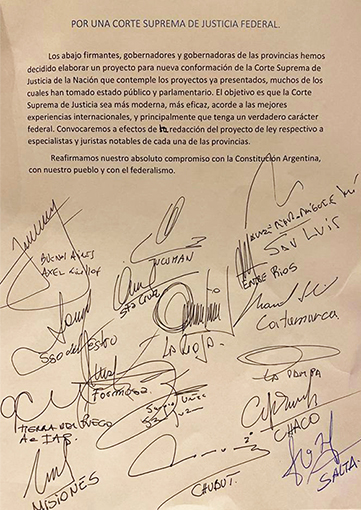 POR UNA CORTE SUPREMA DE JUSTICIA FEDERAL.
Los abajo firmantes, gobernadores y gobernadoras de las provincias hemos
decidido elaborar un proyecto para nueva conformación de la Corte Suprema de
Justicia de la Nación que contemple los proyectos ya presentados, muchos de los
cuales han tomado estado público y parlamentario. El objetivo es que la Corte
Suprema de Justicia sea más moderna, más eficaz, acorde a las mejores
experiencias internacionales, y principalmente que tenga un verdadero carácter
federal. Convocaremos a efectos de la redacción del proyecto de ley respectivo a
especialistas y juristas notables de cada una de las provincias.
Reafirmamos nuestro absoluto compromiso con la Constitución Argentina,
con nuestro pueblo y con el federalismo.
SAN LUIS
BUENOS AIRES
AXEL Kicillof
TUCUMAN
ENTRE RIOS
STA CRUZ
Catamarca
SGO del ESTERO
LA RIOJA
LA PAMPA
Formosa
TIERRA DEL FUEGO
A e IAS
CHACO
MISIONES
CHUBUT.
SALTA.